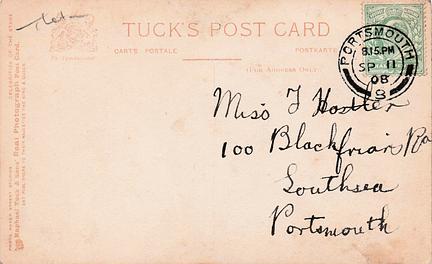 TUCK'S POST CARD
CARTE POSTALE
POSTKARTE
(FOR ADDRESS ONLY)
PORTSMOUTH
8.15.PM
SP 11
08
Miss F Hostler
100 Blackfriars Rd
Southsea
Portsmouth
Raphael Tuck & Sons' Real Photograph Post Card.